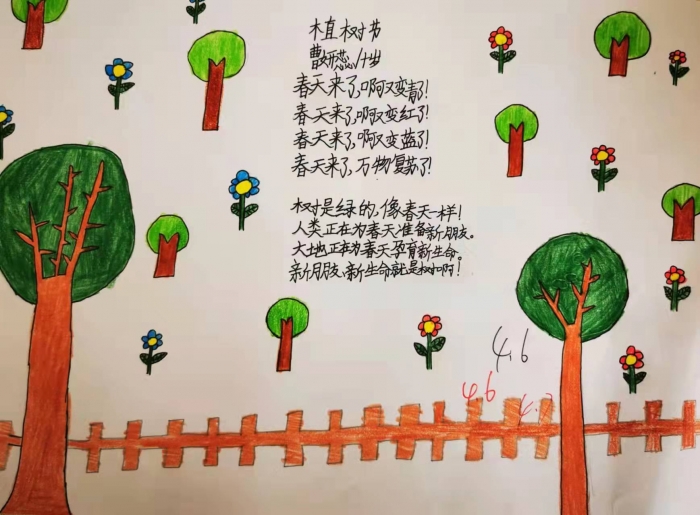 植树节
曹妍蕊/十岁
春天来了,啊又变青了!
春天来了,啊又变红了!
春天来了,啊又变蓝了!
春天来了,万物复苏了!
树是绿的,像春天一样!
人类正在为春天准备新朋友。
大地正在为春天孕育新生命。
新朋友,新生命就是树啊!
4.6
4.6